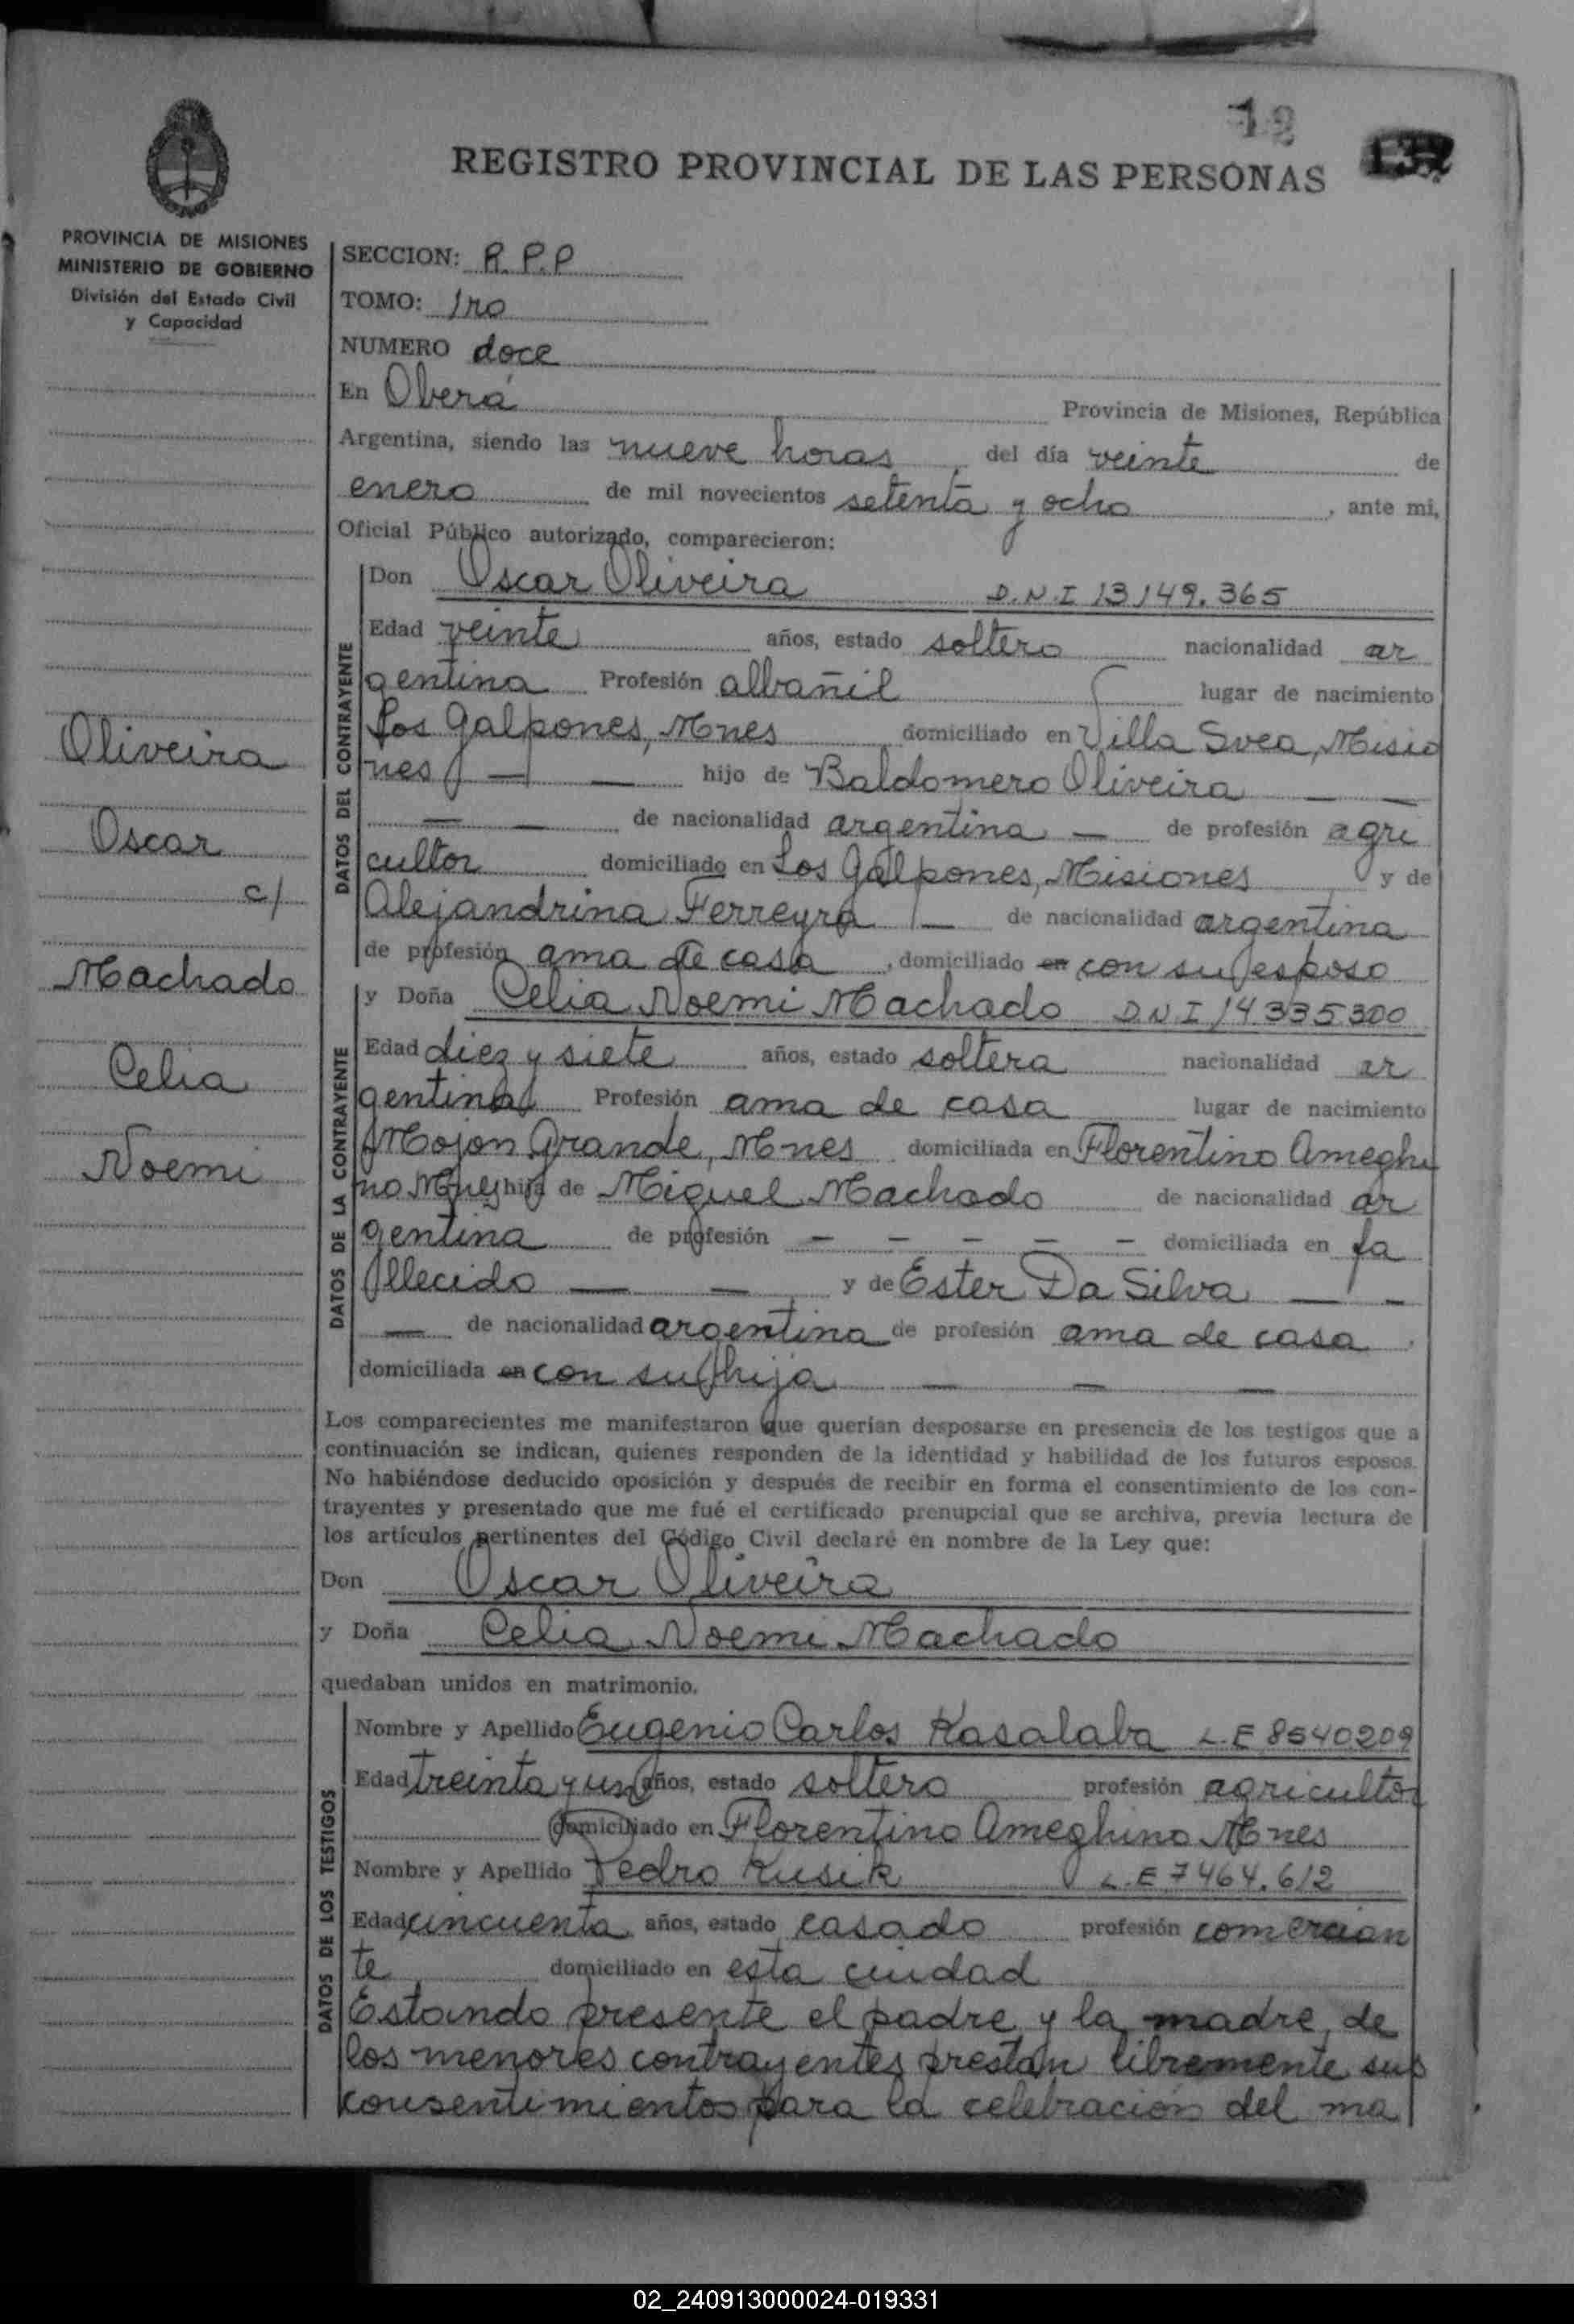 12
137
REGISTRO PROVINCIAL DE LAS PERSONAS
PROVINCIA DE MISIONES
MINISTERIO DE GOBIERNO
División del Estado Civil
y Capacidad
SECCION: R.P.P
TOMO: 1ro
NUMERO doce
En Oberá Provincia de Misiones, República
Argentina, siendo las nueve horas, del día veinte de
enero de mil novecientos setenta y ocho, ante mi,
Oficial Público autorizado, comparecieron:
Oliveira
Oscar
c/
Machado
Celia
Noemi
DATOS DEL CONTRAYENTE
Don Oscar Oliveira D.N.I 13149.365
Edad veinte años, estado soltero nacionalidad ar
gentina Profesión albañil lugar de nacimiento
Los Galpones, Mnes domiciliado en Villa Svea, Misio
nes — — hijo de Baldomero Oliveira — —
— — de nacionalidad argentina — de profesión agri
cultor domiciliado en Los Galpones, Misiones y de
Alejandrina Ferreyra — de nacionalidad argentina
de profesión ama de casa, domiciliado en con su esposo
DATOS DE LA CONTRAYENTE
y Doña Celia Noemi Machado D.N.I 14335300
Edad diez y siete años, estado soltera nacionalidad ar
gentina Profesión ama de casa lugar de nacimiento
Mojon Grande, Mnes domiciliada en Florentino Ameghi
no Mnes hija de Miguel Machado de nacionalidad ar
gentina de profesión — — — — — domiciliada en fa
llecido — — y de Ester Da Silva — —
— de nacionalidad argentina de profesión ama de casa.
domiciliada en con su hija — — —
Los comparecientes me manifestaron que querían desposarse en presencia de los testigos que a
continuación se indican, quienes responden de la identidad y habilidad de los futuros esposos.
No habiéndose deducido oposición y después de recibir en forma el consentimiento de los con-
trayentes y presentado que me fué el certificado prenupcial que se archiva, previa lectura de
los artículos pertinentes del Código Civil declaré en nombre de la Ley que:
Don Oscar Oliveira
y Doña Celia Noemi Machado
quedaban unidos en matrimonio.
DATOS DE LOS TESTIGOS
Nombre y Apellido Eugenio Carlos Kasalaba L.E 8540209
Edad treinta y un años, estado soltero profesión agricultor
domiciliado en Florentino Ameghino Mnes
Nombre y Apellido Pedro Kusik L.E 7464.612
Edad cincuenta años, estado casado profesión comercian
te domiciliado en esta ciudad
Estando presente el padre y la madre, de
los menores contrayentes prestan libremente sus
consentimientos para la celebración del ma
02_240913000024-019331